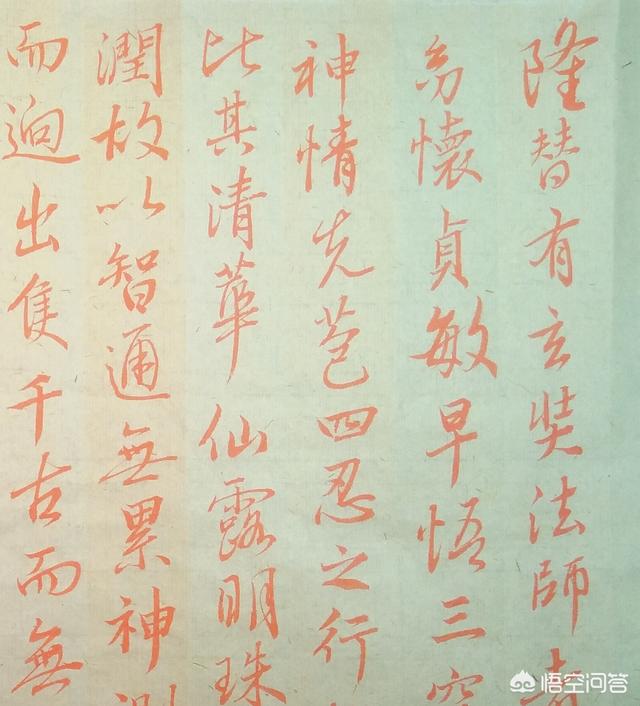 隆替有玄奘法師者
幼懷貞敏早悟三空
神情先苞四忍之行
比其清華仙露明珠
潤故以智通無累神測
而迥出隻千古而無
悟空问答